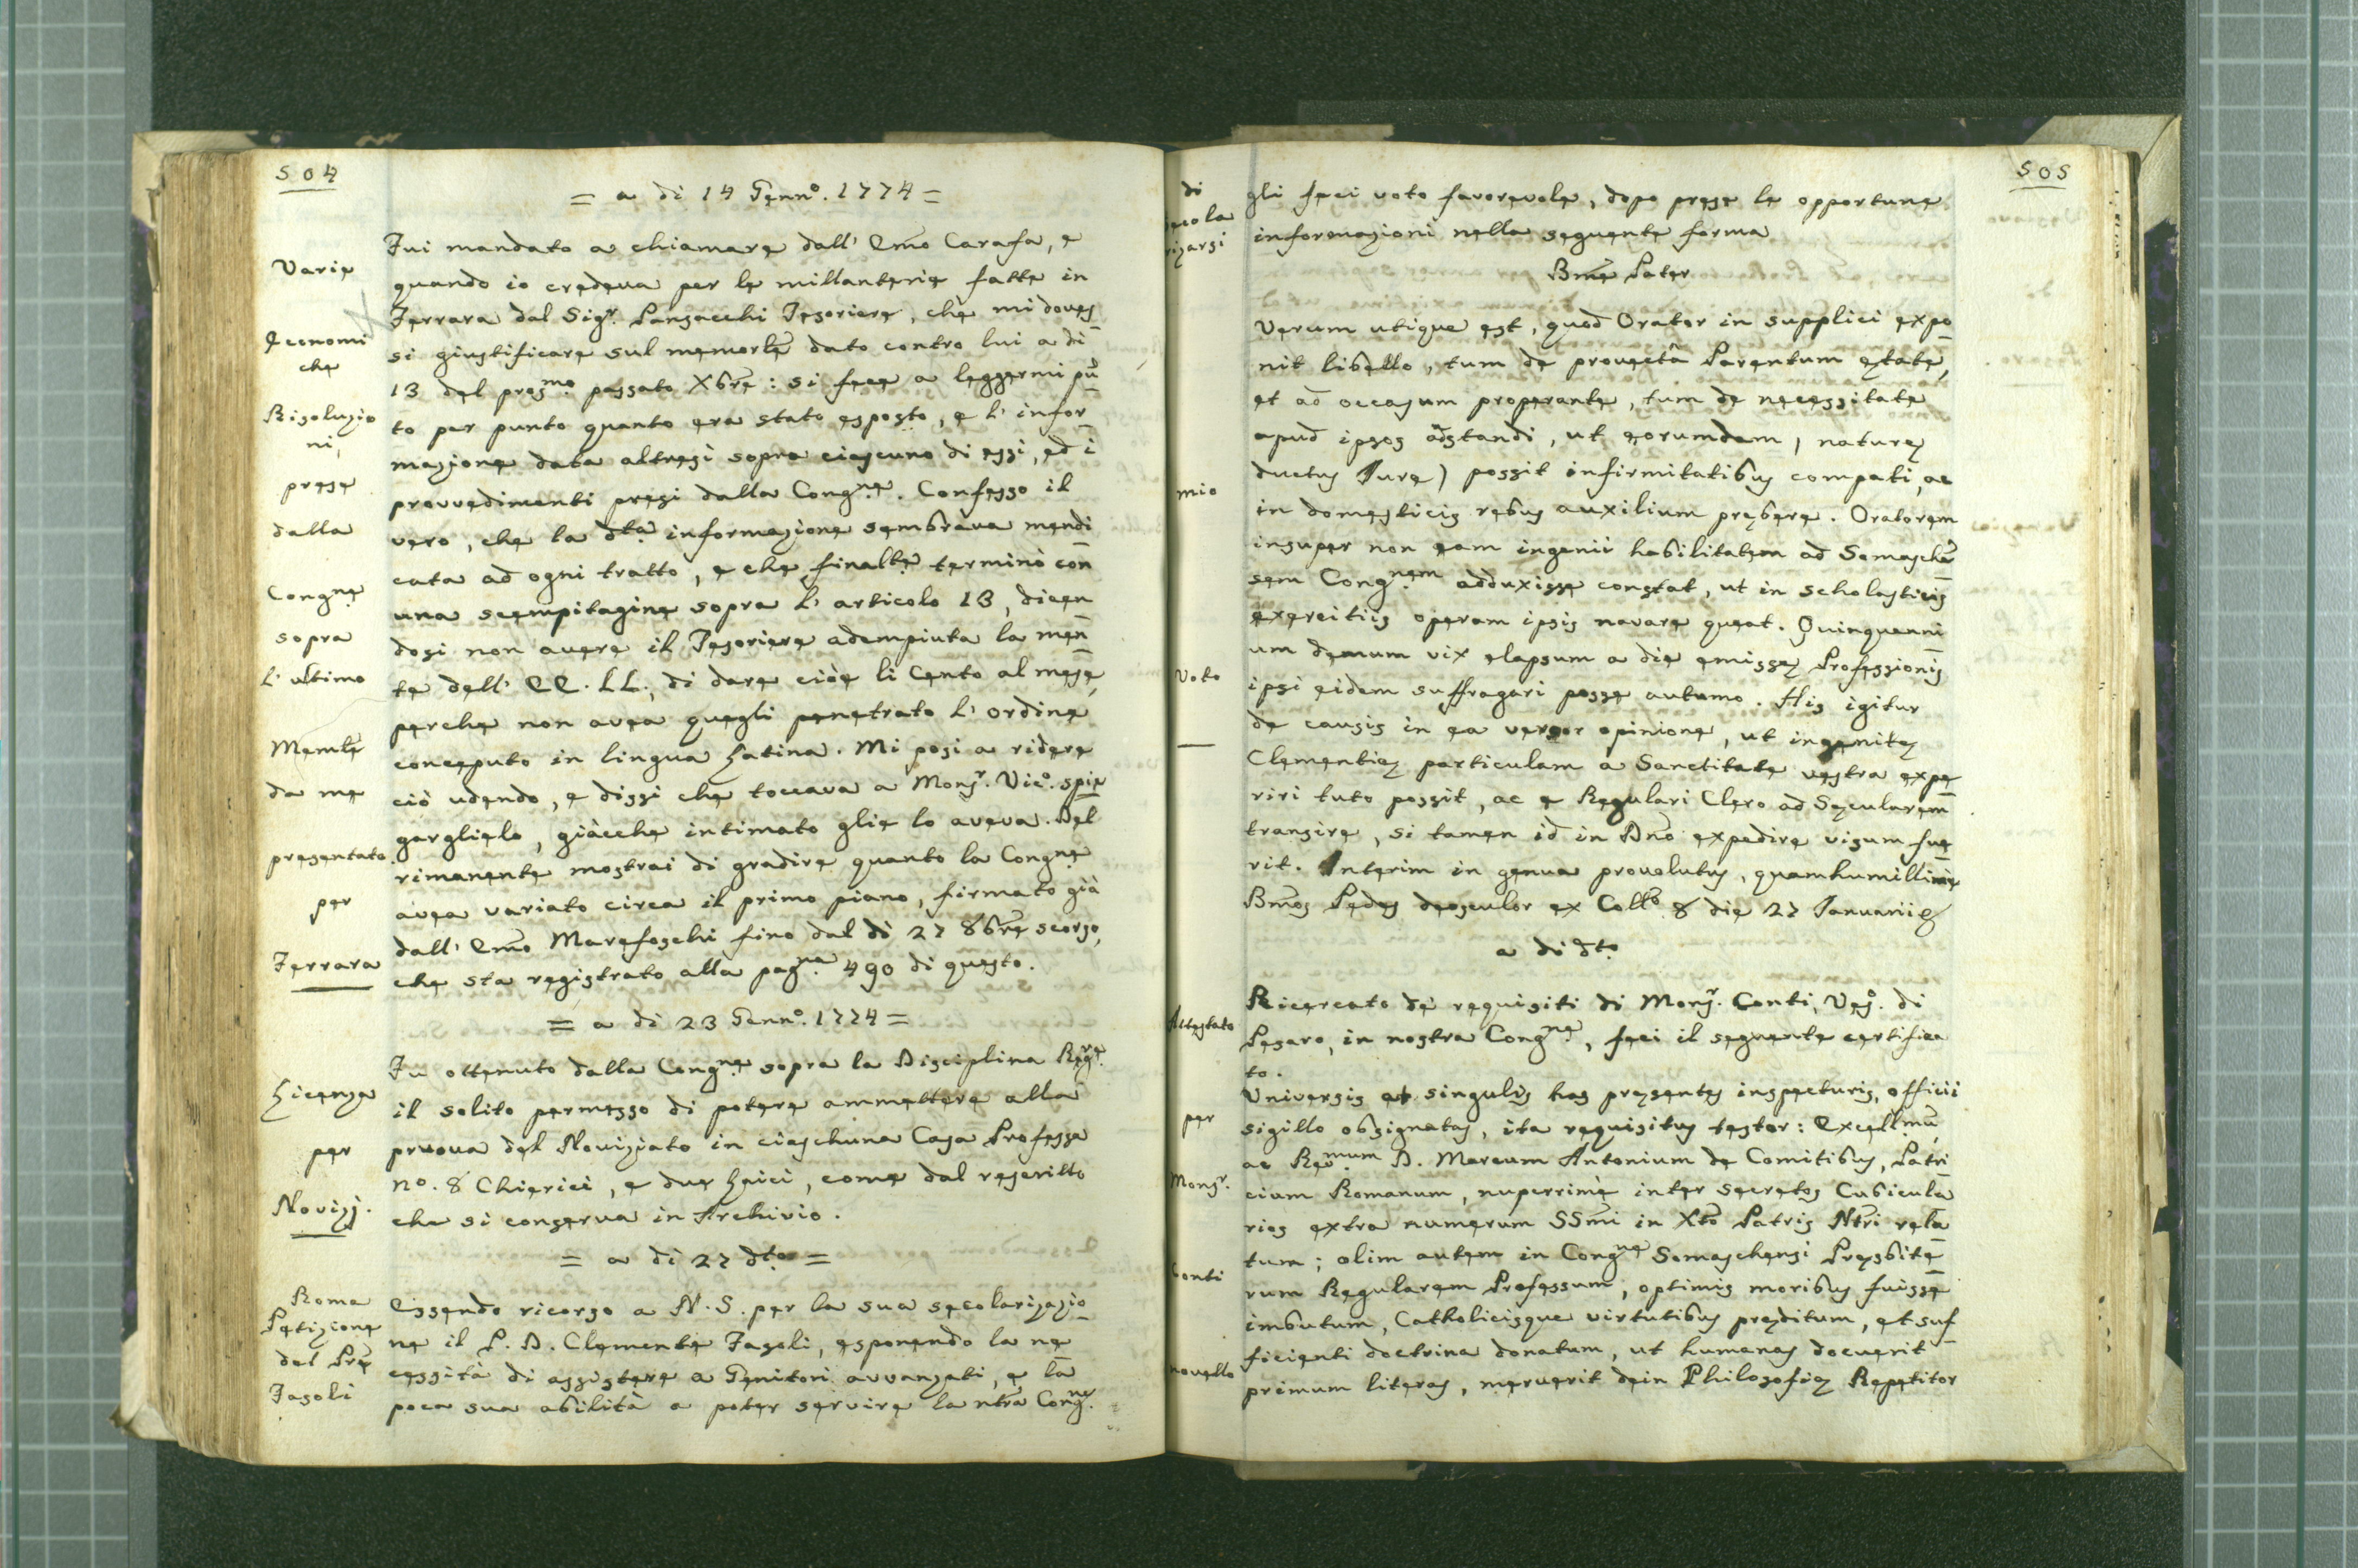 504
= a di 14 Genn.º 1774 =
Varie
Economi
che
Risoluzio
ni,
prese
dalla
Cong.ne
sopra
l' ultimo
Memle
da me
presentato
per
Ferrara
Fui mandato a chiamare dall' Emo Carafa, e
quando io credeva per le millanterie fatte in
Ferrara dal Sig.r Pansacchi Tesoriere, che mi doves
si giustificare sul memorle dato contro lui a di
13 del pros.mo passato Xbre: si fece a leggermi pũ
to per punto quanto era stato esposto, e l' infor
mazione data altresì sopra ciascuno di essi, ed i
provvedimenti presi dalla Cong.ne. Confesso il
vero, che la d.ta informazione sembrava mendi
cata ad ogni tratto, e che finalte terminò con
una scempitagine sopra l' articolo 13, dicen
dosi non avere il Tesoriere adempiuta la men
te dell' EE. LL., di dare cioè li Cento al mese,
perche non avea quegli penetrato l' ordine
conceputo in lingua Latina. Mi posi a ridere
ciò udendo, e dissi che toccava a Mons.r Vic.º spie
garglielo, giàcche intimato glie lo aveva. Del
rimanente mostrai di gradire quanto la Cong.ne
avea variato circa il primo piano, firmato già
dall' Emo Marefoschi fino dal dì 27 8bre scorso,
che sta registrato alla pag.na 490 di questo.
= a di 23 Genn.º 1774 =
Licenza
per
Novizj.
Fu ottenuto dalla Cong.ne sopra la Disciplina Reg.re
il solito permesso di potere ammettere alla
pruova del Noviziato in ciaschuna Casa Professa
nº. 8 Chierici, e due Laici, come dal rescritto
che si conserva in Archivio.
= a di 27 d.to =
Roma
Petizione
del Pre
Fasoli
Essendo ricorso a N. S. per la sua secolarizazio
ne il P. D. Clemente Fasoli, esponendo la ne
cessità di assistere a Genitori avvanzati, e la
poca sua abilità a poter servire la ntra Cong.ne
505
di
secola
rizarsi
mio
Voto
gli feci voto favorevole, dopo prese le opportune
informazioni nella seguente forma
Bme Pater
Verum utique est, quod Orator in supplici expo
nit libello, tum de provectâ Parentum ętate,
et ad occasum properante, tum de necessitate
apud ipsos adstandi, ut eorumdem, naturę
ductus Jure) possit infirmitatibus compati, ac
in domesticis rebus auxilium prębere. Oratorem
insuper non eam ingenii habilitatem ad Somaschẽ
sem Cong.nem adduxisse constat, ut in scholasticis
exercitiis operam ipsis navare queat. Quinquenni
um demum vix elapsum a die emissę Professionis
ipsi eidem suffragari posse autumo. His igitur
de causis in ea versor opinione, ut ingenitę
Clementię particulam a Sanctitate vestra expe
riri tuto possit, ac e Regulari Clero ad Sęcularem
transire, si tamen id in Dno expedire visum fue
rit. Interim in genua provolutus, quamhumillime
Bmos Pedes deosculor ex Collo 8 die 27 Januarii
a di d.to
Attestato
per
Mons.r
Conti
novello
Ricercato de requisiti di Mons.r Conti, Ves.º di
Pesaro, in nostra Cong.ne, feci il seguente certifica
to.
Universis et singulis has pręsentes inspecturis, officii
sigillo obsignatas, ita requisitus testor: Excell.mũ,
ac Rev.mum D. Marcum Antonium de Comitibus, Patri
cium Romanum, nuperrimè inter secretos Cubicula
rios extra numerum SSmi in Xto Patris Ntri rela
tum; olim autem in Cong.ne Somaschensi Pręsbite
rum Regularem Professum, optimis moribus fuisse
imbutum, Catholicisque virtutibus pręditum, et suf
ficienti doctrina donatum, ut humanas docuerit
primum literas, meruerit dein Philosofię Repetitor